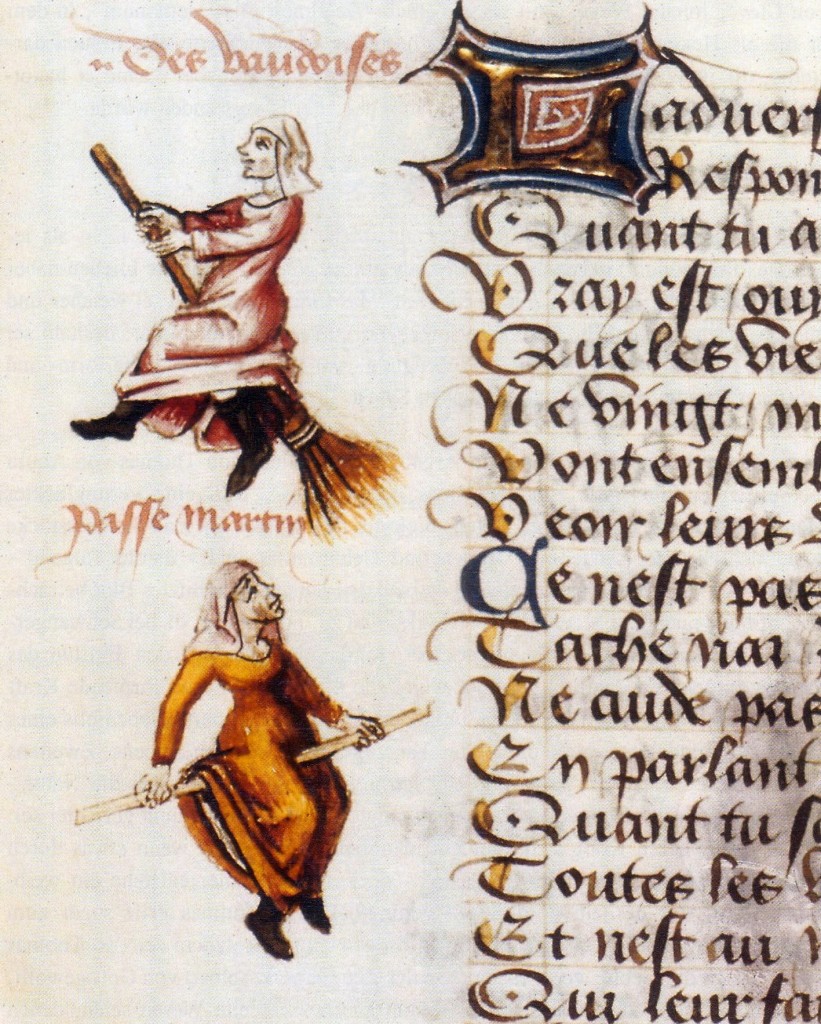 Des vaudoises
passe martin
Ladvers
Respon
Quant tu a
Vray est / ouy
Que les vie
Ne vingt / m
Vont ensembl
Veoir leurs
Ce nest pas
Tache nar
Ne cuide pas
En parlant
Quant tu sc
Toutes les v
Et nest au
Qui leur fa